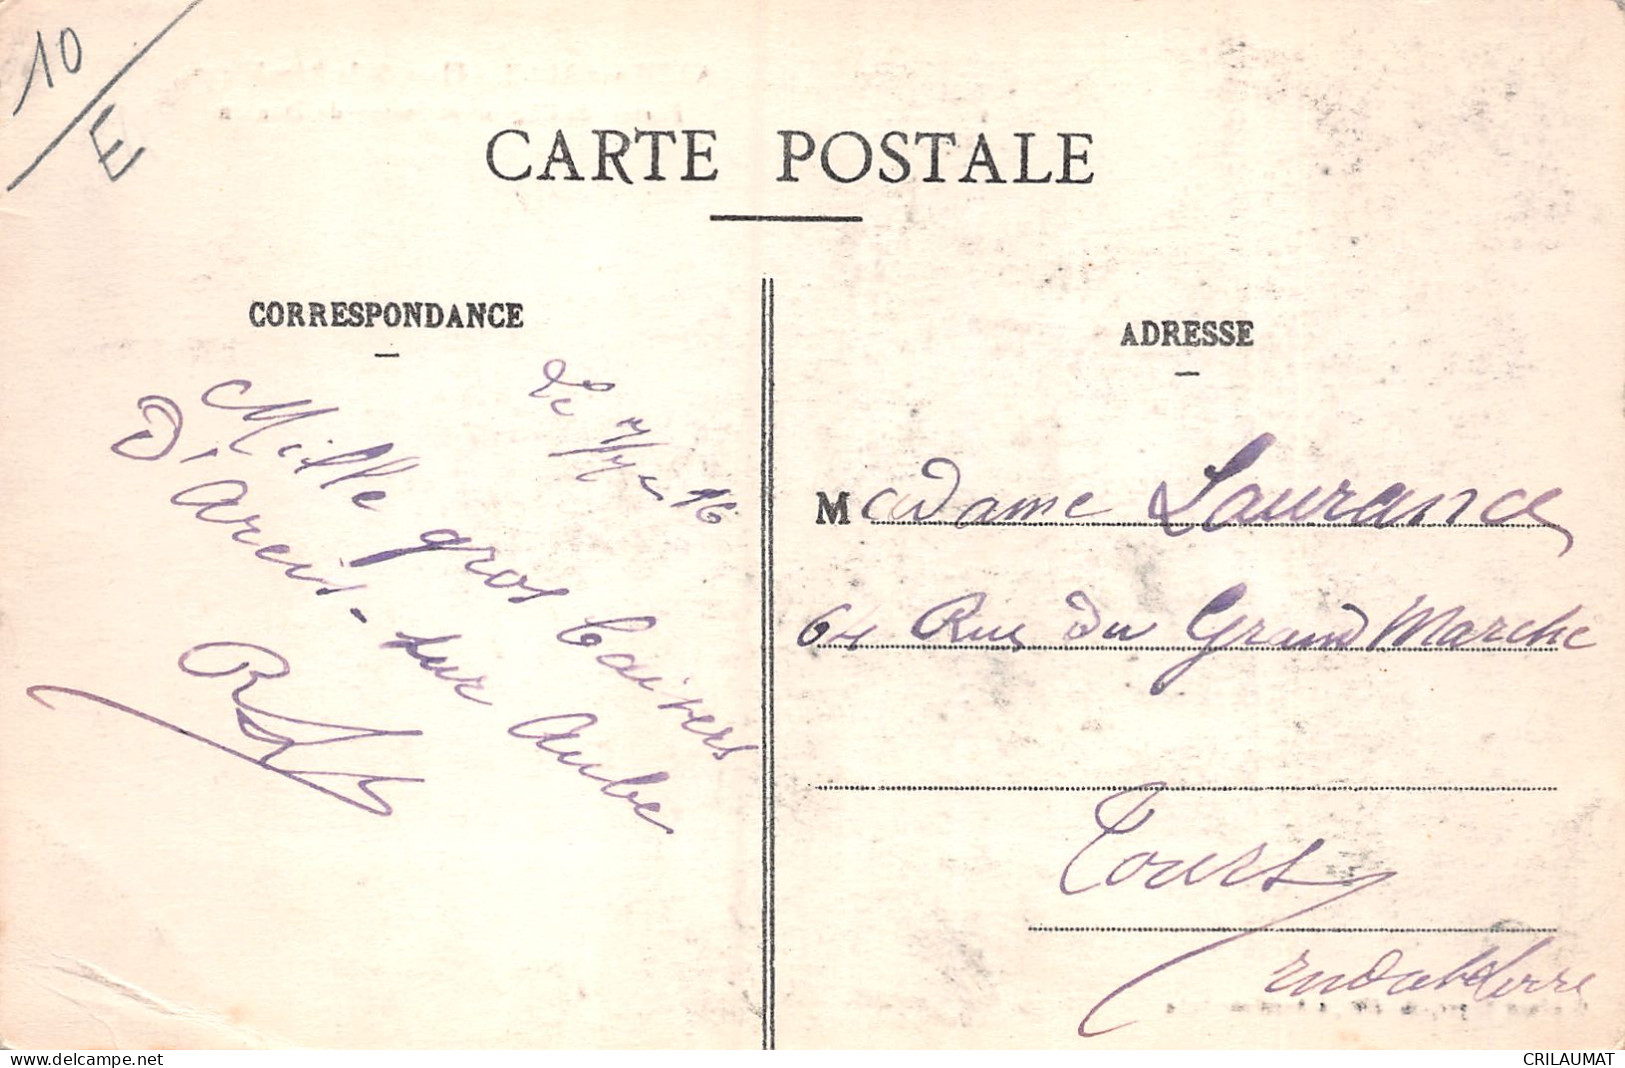 10
E
CARTE POSTALE
CORRESPONDANCE
Le 7/7-16
Mille gros baisers
D'Arcis-sur Aube
ADRESSE
Madame Laurance
64 Rue Du Grand Marche
Tours
CRILAUMAT